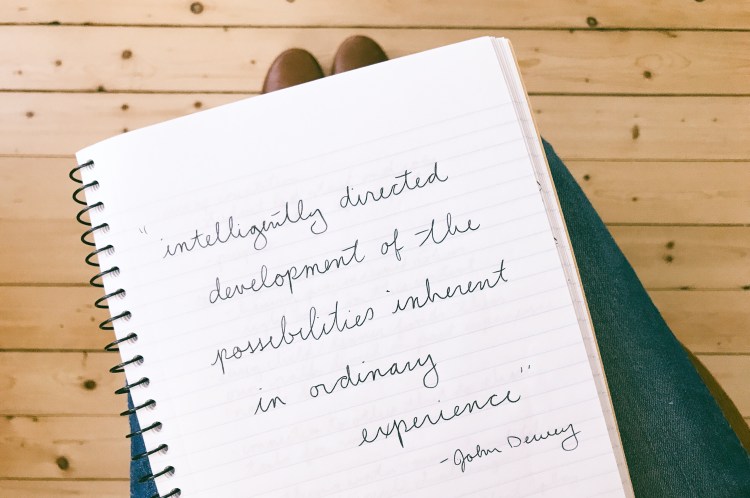 "intelligently directed
development of the
possibilities inherent
in ordinary
experience"
-John Dewey